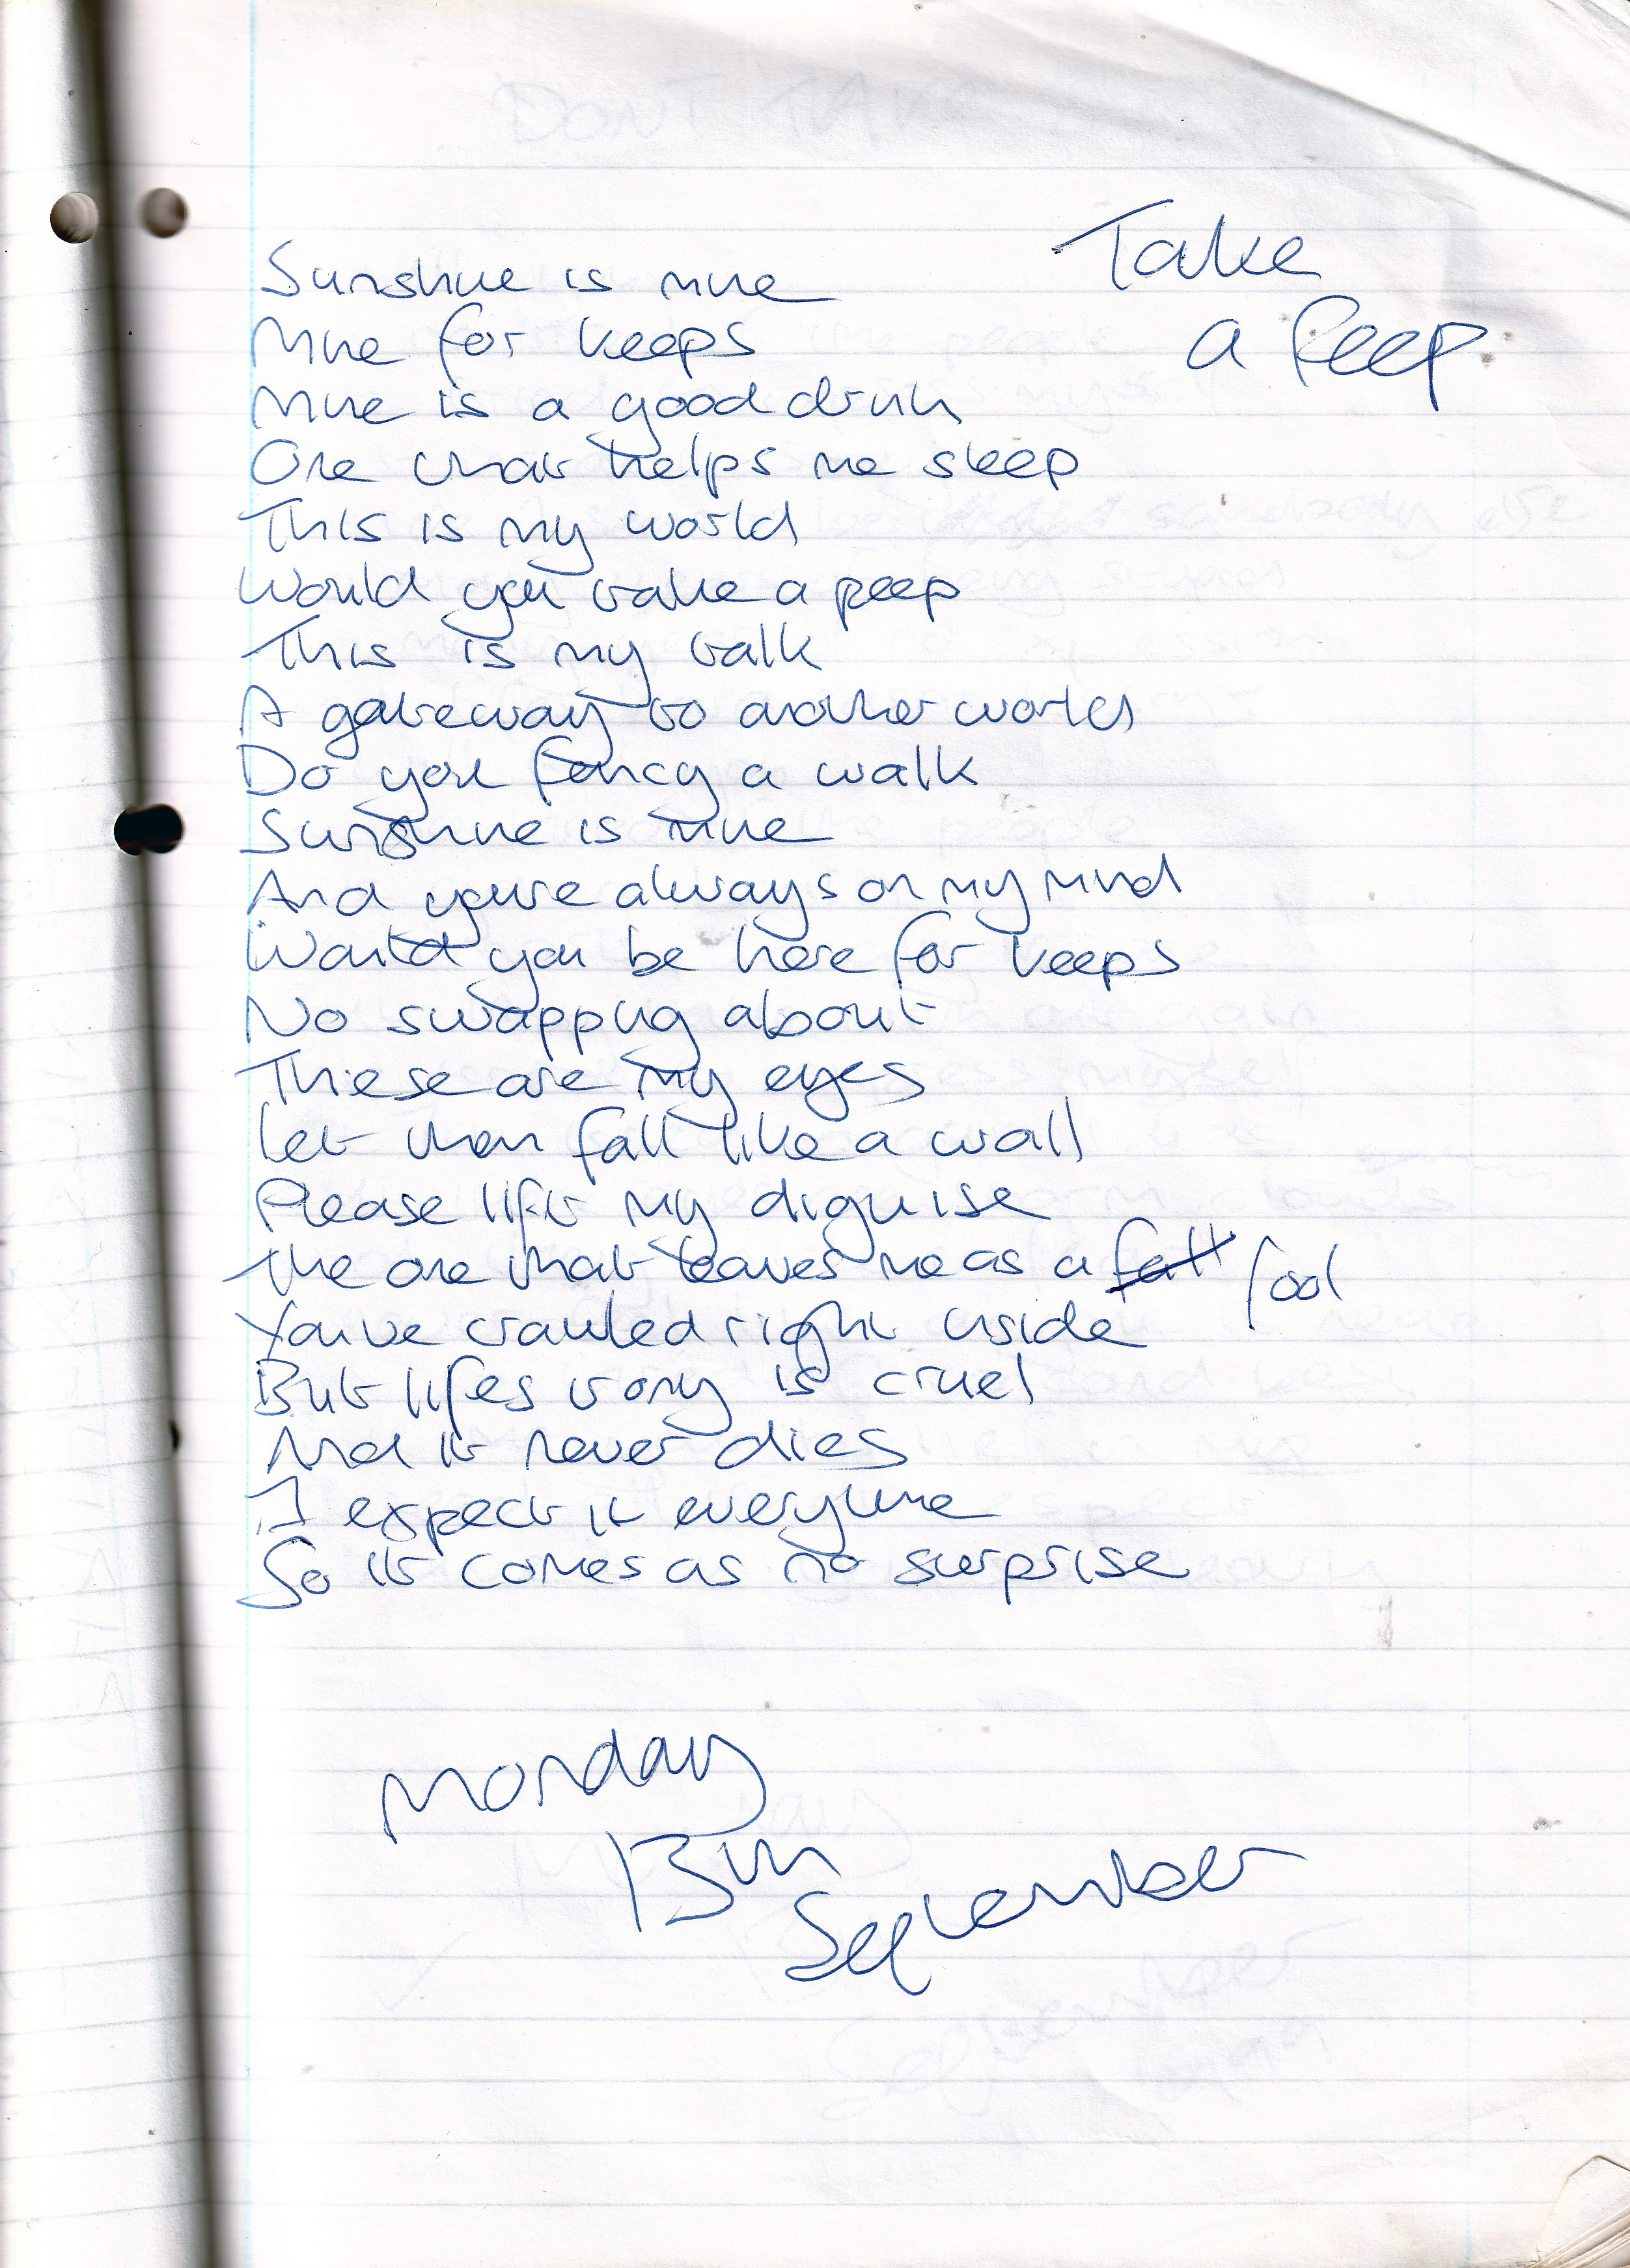 Take
a Peep
Sunshine is mine
Mine for keeps
Mine is a good drink
One that helps me sleep
This is my world
Would you take a peep
This is my talk
A gateway to another world
Do you fancy a walk
Sunshine is mine
And you're always on my mind
Would you be here for keeps
No swapping about
These are my eyes
Let them fall like a wall
Please lift my diguise
The one that leaves me as a fall fool
You've crawled right inside
But lifes irony is cruel
And it never dies
I expect it everytime
So it comes as no surprise
Monday
13th
September